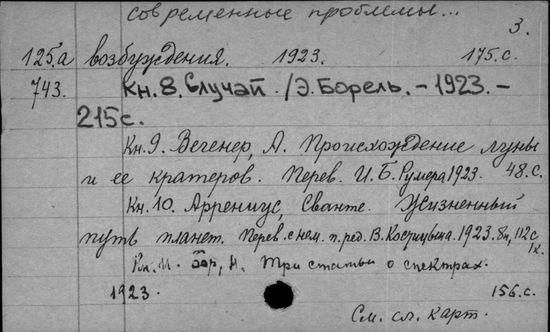 современные проблемы...
3.
125.а возбуждения. 1923. 175.с.
743. Кн.8. Случай. /Э. Борель. - 1923. -
215с.
Кн.9. Вегенер, А. Происхождение луны
и ее кратеров. Перев. И.Б. Румера 1923. 48.с.
Кн.10. Аррениус, Сванте. Жизненный
путь планет. Перев. с нем. п. ред. В. Костицына. 1923. 112с
Кн. 11. Бор, Н. Три статьи о спектрах.
1923. 156.с.
См. сл. карт.